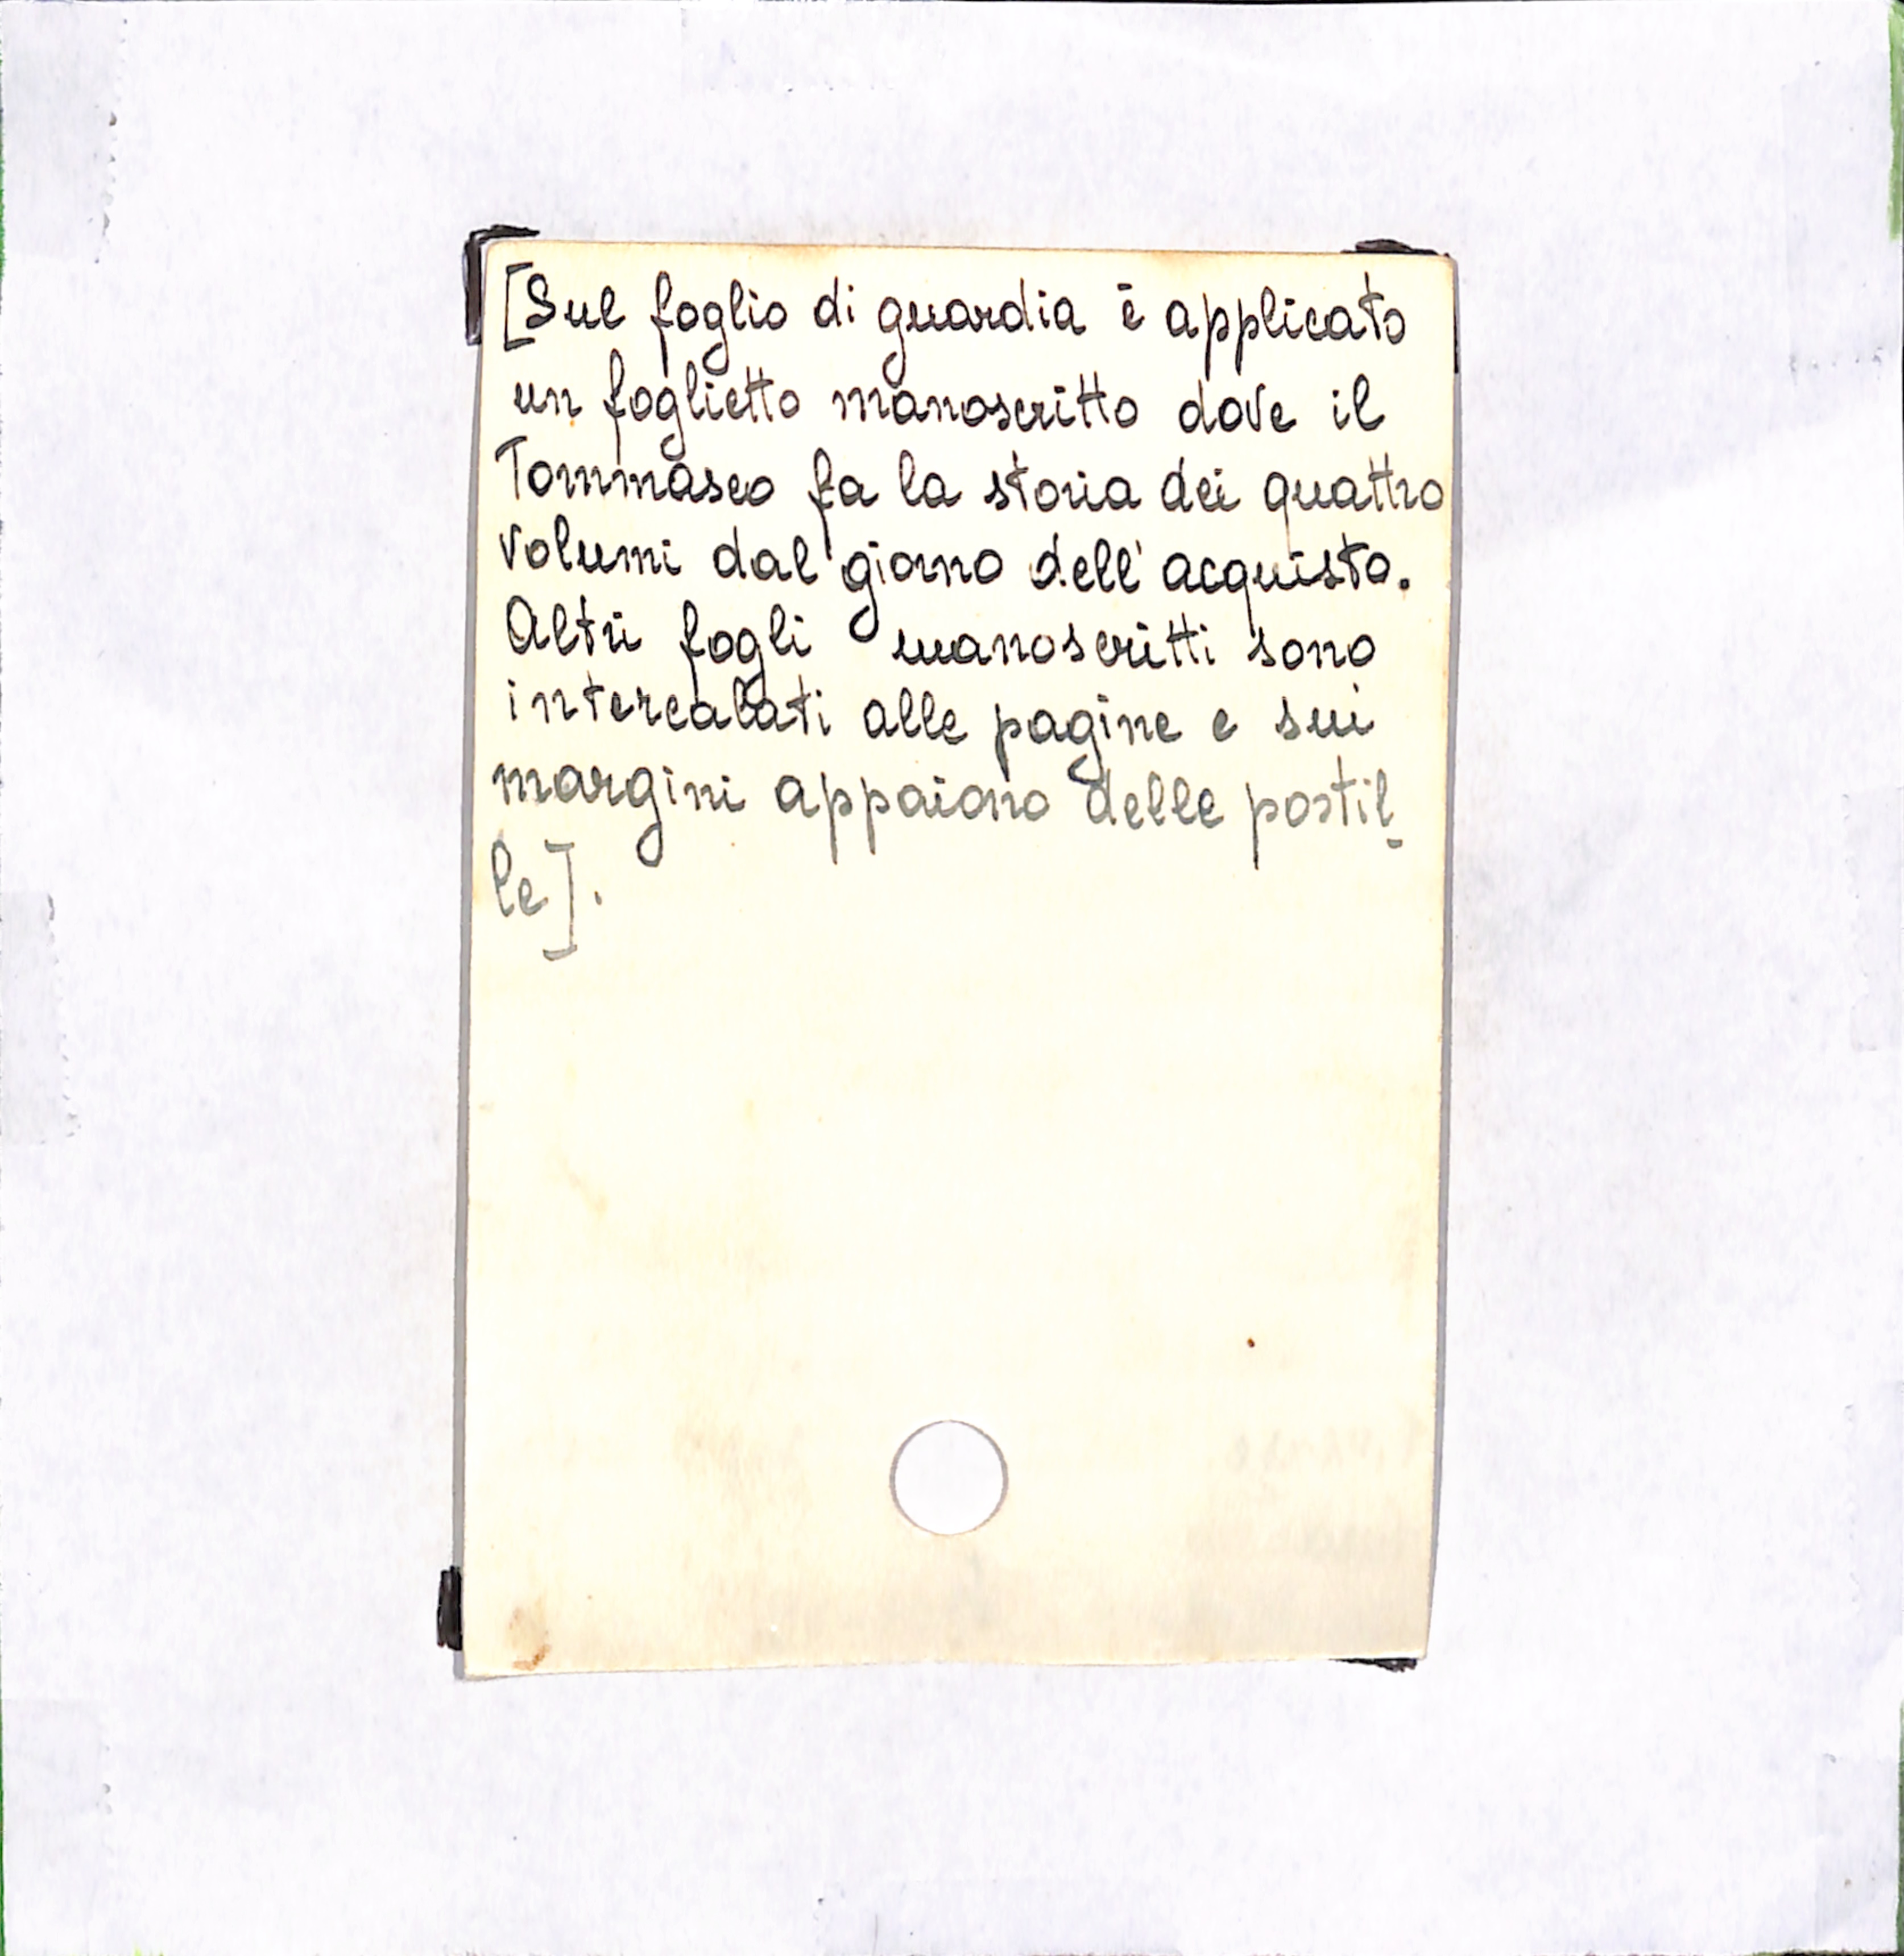 [Sul foglio di guardia è applicato
un foglietto manoscritto dove il
Tommaseo fa la storia dei quattro
volumi dal giorno dell'acquisto.
Altri fogli manoscritti sono
intercalati alle pagine e sui
margini appaiono delle postil-
le].